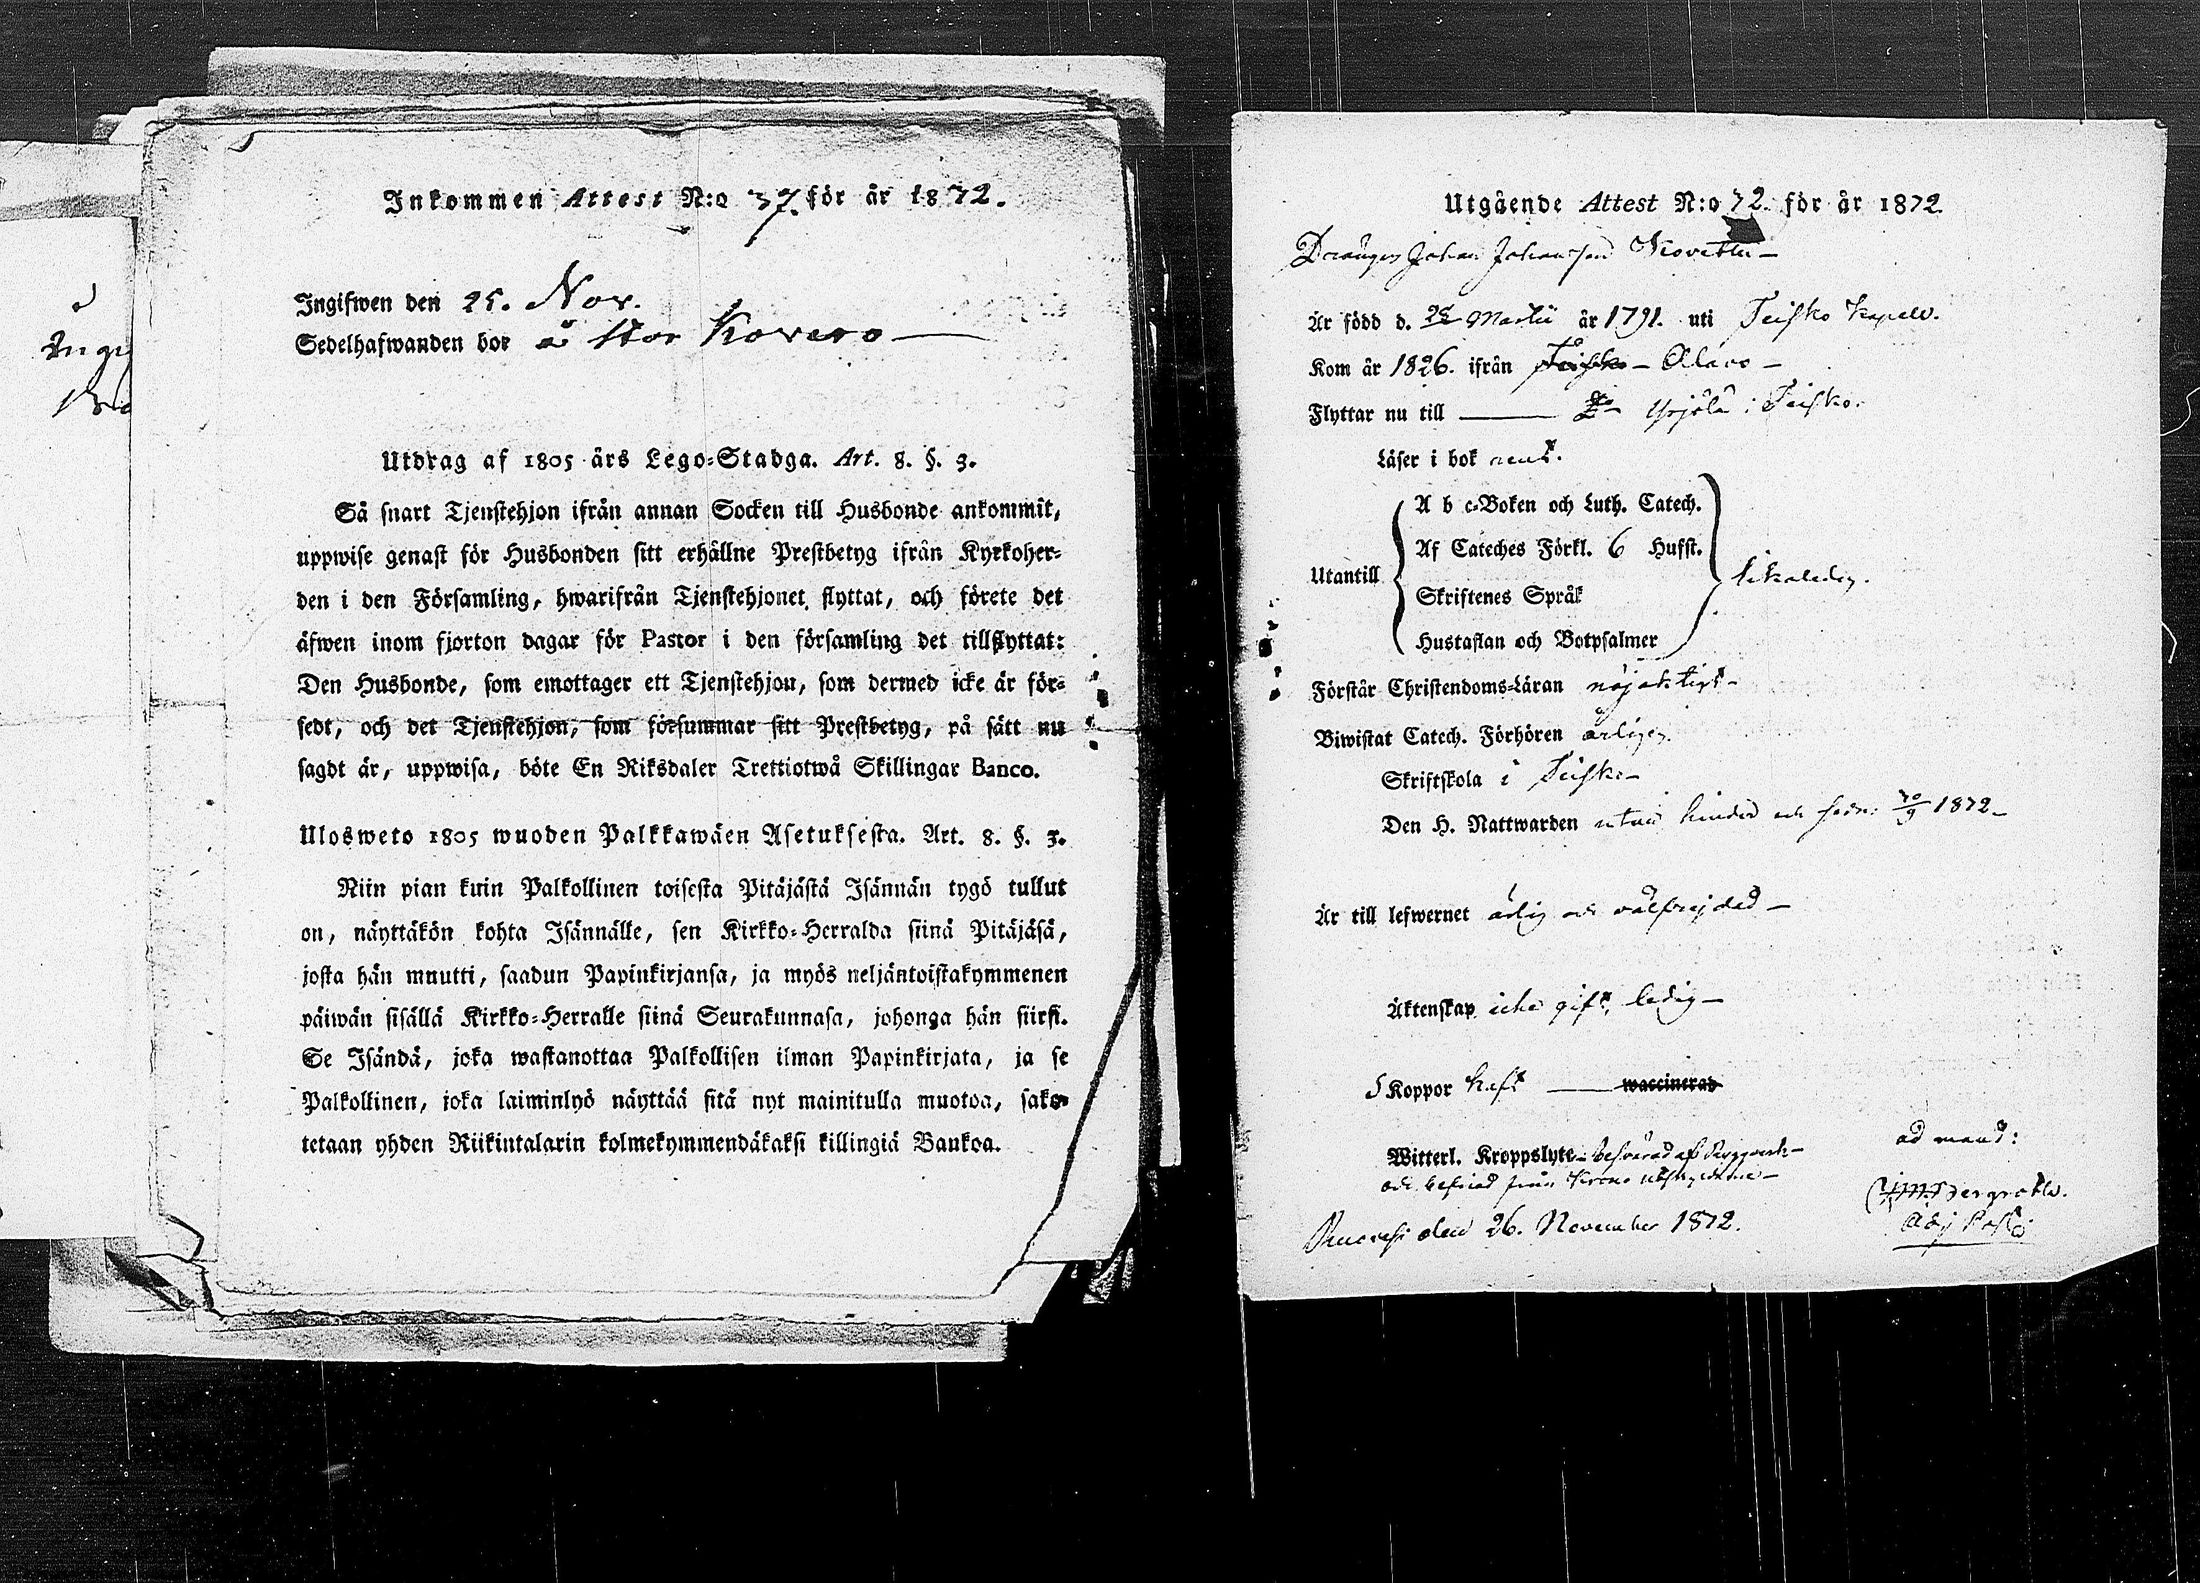 Inkommen Attest N:o 37. för år 1872.
Ingifwen den 25. Nov.
Sedelhafwanden bor å Stor Kovero
Utdrag af 1805 års Lego-Stadga. Art. 8. §. 3.
Så snart Tjenstehjon ifrån annan Socken till Husbonde ankommit,
uppwise genast för Husbonden sitt erhållne Prestbetyg ifrån Kyrkoher-
den i den Församling, hwarifrån Tjenstehjonet flyttat, och förete det
äfwen inom fjorton dagar för Pastor i den församling det tillflyttat:
Den Husbonde, som emottager ett Tjenstehjon, som dermed icke är för-
sedt, och det Tjenstehjon, som försummar sitt Prestbetyg, på sätt nu
sagdt är, uppwisa, böte En Riksdaler Trettiotwå Skillingar Banco.
Ulosweto 1805 wuoden Palkkawäen Asetuksesta. Art. 8. §. 3.
Niin pian kuin Palkollinen toisesta Pitäjästä Isännän tygö tullut
on, näyttäkön kohta Isännälle, sen Kirkko-Herralda siinä Pitäjäsä,
josta hän muutti, saadun Papinkirjansa, ja myös neljäntoistakymmenen
päiwän sisällä Kirkko-Herralle siinä Seurakunnasa, johonga hän siirsi.
Se Isändä, joka wastanottaa Palkollisen ilman Papinkirjata, ja se
Palkollinen, joka laiminlyö näyttää sitä nyt mainitulla muotoa, sako-
tetaan yhden Riikintalarin kolmekymmendäkaksi killingiä Bankoa.
Utgående Attest N:o 72. för år 1872.
Drängen Johan Johansson
Är född d. Martii år 1791. uti Teisko Kapell.
Kom år 1826. ifrån Teisko - Alavo -
Flyttar nu till Yrjölä i Teisko.
Läser i bok rent.
A b c-Boken och Luth. Catech.
Af Cateches Förkl. 6 Hufst.
Utantill
Skriftenes Språk
Hustaflan och Botpsalmer
likaledes.
Förstår Christendoms-Läran nöjaktigt -
Biwistat Catech. Förhören årligen.
Skriftskola i Teisko -
Den H. Nattwarden utan hinder och sedn. 1872 -
Är till lefwernet ärlig och välfrejdad -
Äktenskap icke gift, ledig -
Koppor haft waccinerad
Witterl. Kroppslyte - besvärad af
och befriad från Krono utskylderne -
Ruovesi den 26. November 1872.
ad mand:
Bergroth.
Adj Past: